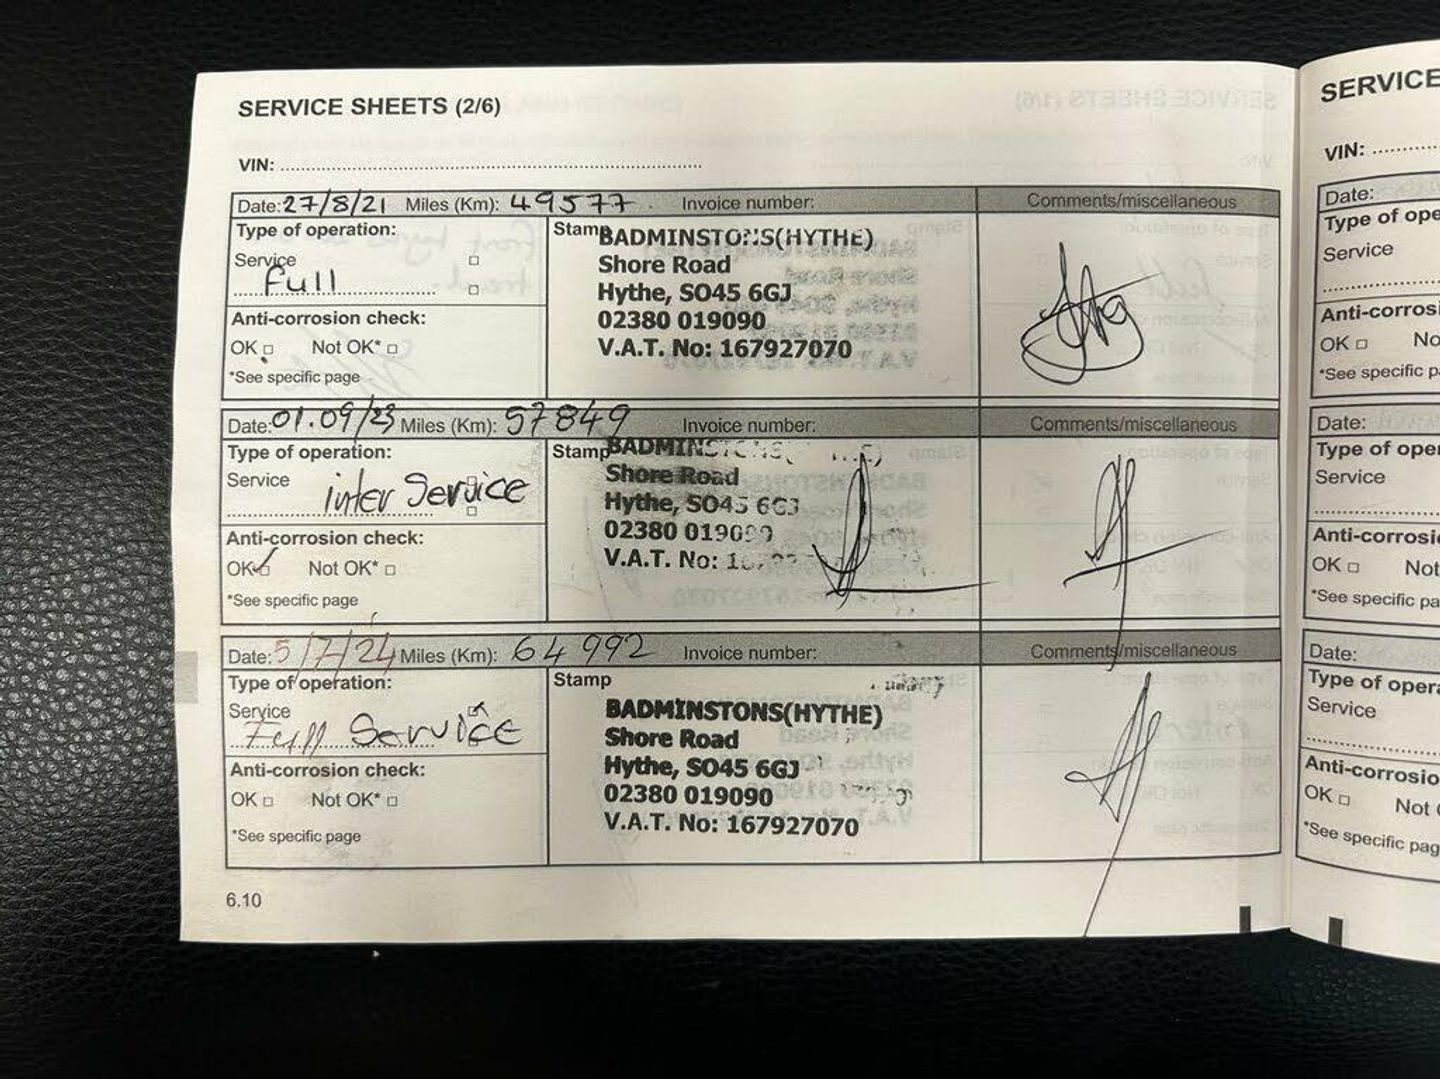 SERVICE SHEETS (2/6)
VIN:
Date: 27/8/21 Miles (Km): 49577 Invoice number: Comments/miscellaneous
Type of operation: Stamp
Service
Full
BADMINSTONS(HYTHE)
Shore Road
Hythe, SO45 6GJ
02380 019090
V.A.T. No: 167927070
Anti-corrosion check:
OK Not OK*
*See specific page
Date: 01.09/23 Miles (Km): 57849 Invoice number: Comments/miscellaneous
Type of operation: Stamp
Service inter Service
BADMINSTONS
Shore Road
Hythe, SO45 6GJ
02380 019090
V.A.T. No:
Anti-corrosion check:
OK Not OK*
*See specific page
Date: 5/7/24 Miles (Km): 64992 Invoice number: Comments/miscellaneous
Type of operation: Stamp
Service
Full Service
BADMINSTONS(HYTHE)
Shore Road
Hythe, SO45 6GJ
02380 019090
V.A.T. No: 167927070
Anti-corrosion check:
OK Not OK*
*See specific page
6.10
SERVICE
VIN:
Date:
Type of ope
Service
Anti-corrosi
OK No
*See specific p
Date:
Type of oper
Service
Anti-corrosi
OK Not
*See specific pa
Date:
Type of opera
Service
Anti-corrosio
OK Not
*See specific pag